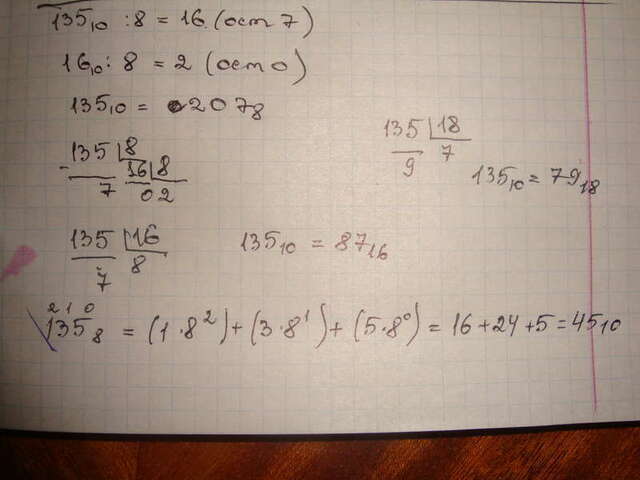 135₁₀ : 8 = 16 (ост 7)
16₁₀ : 8 = 2 (ост 0)
135₁₀ = 207₈
135 | 8
16 | 8
7 0 2
135 | 18
9 7
135₁₀ = 79₁₈
135 | 16
7 8
135₁₀ = 87₁₆
2 1 0
135₈ = (1·8²)+(3·8¹)+(5·8⁰) = 16+24+5=45₁₀